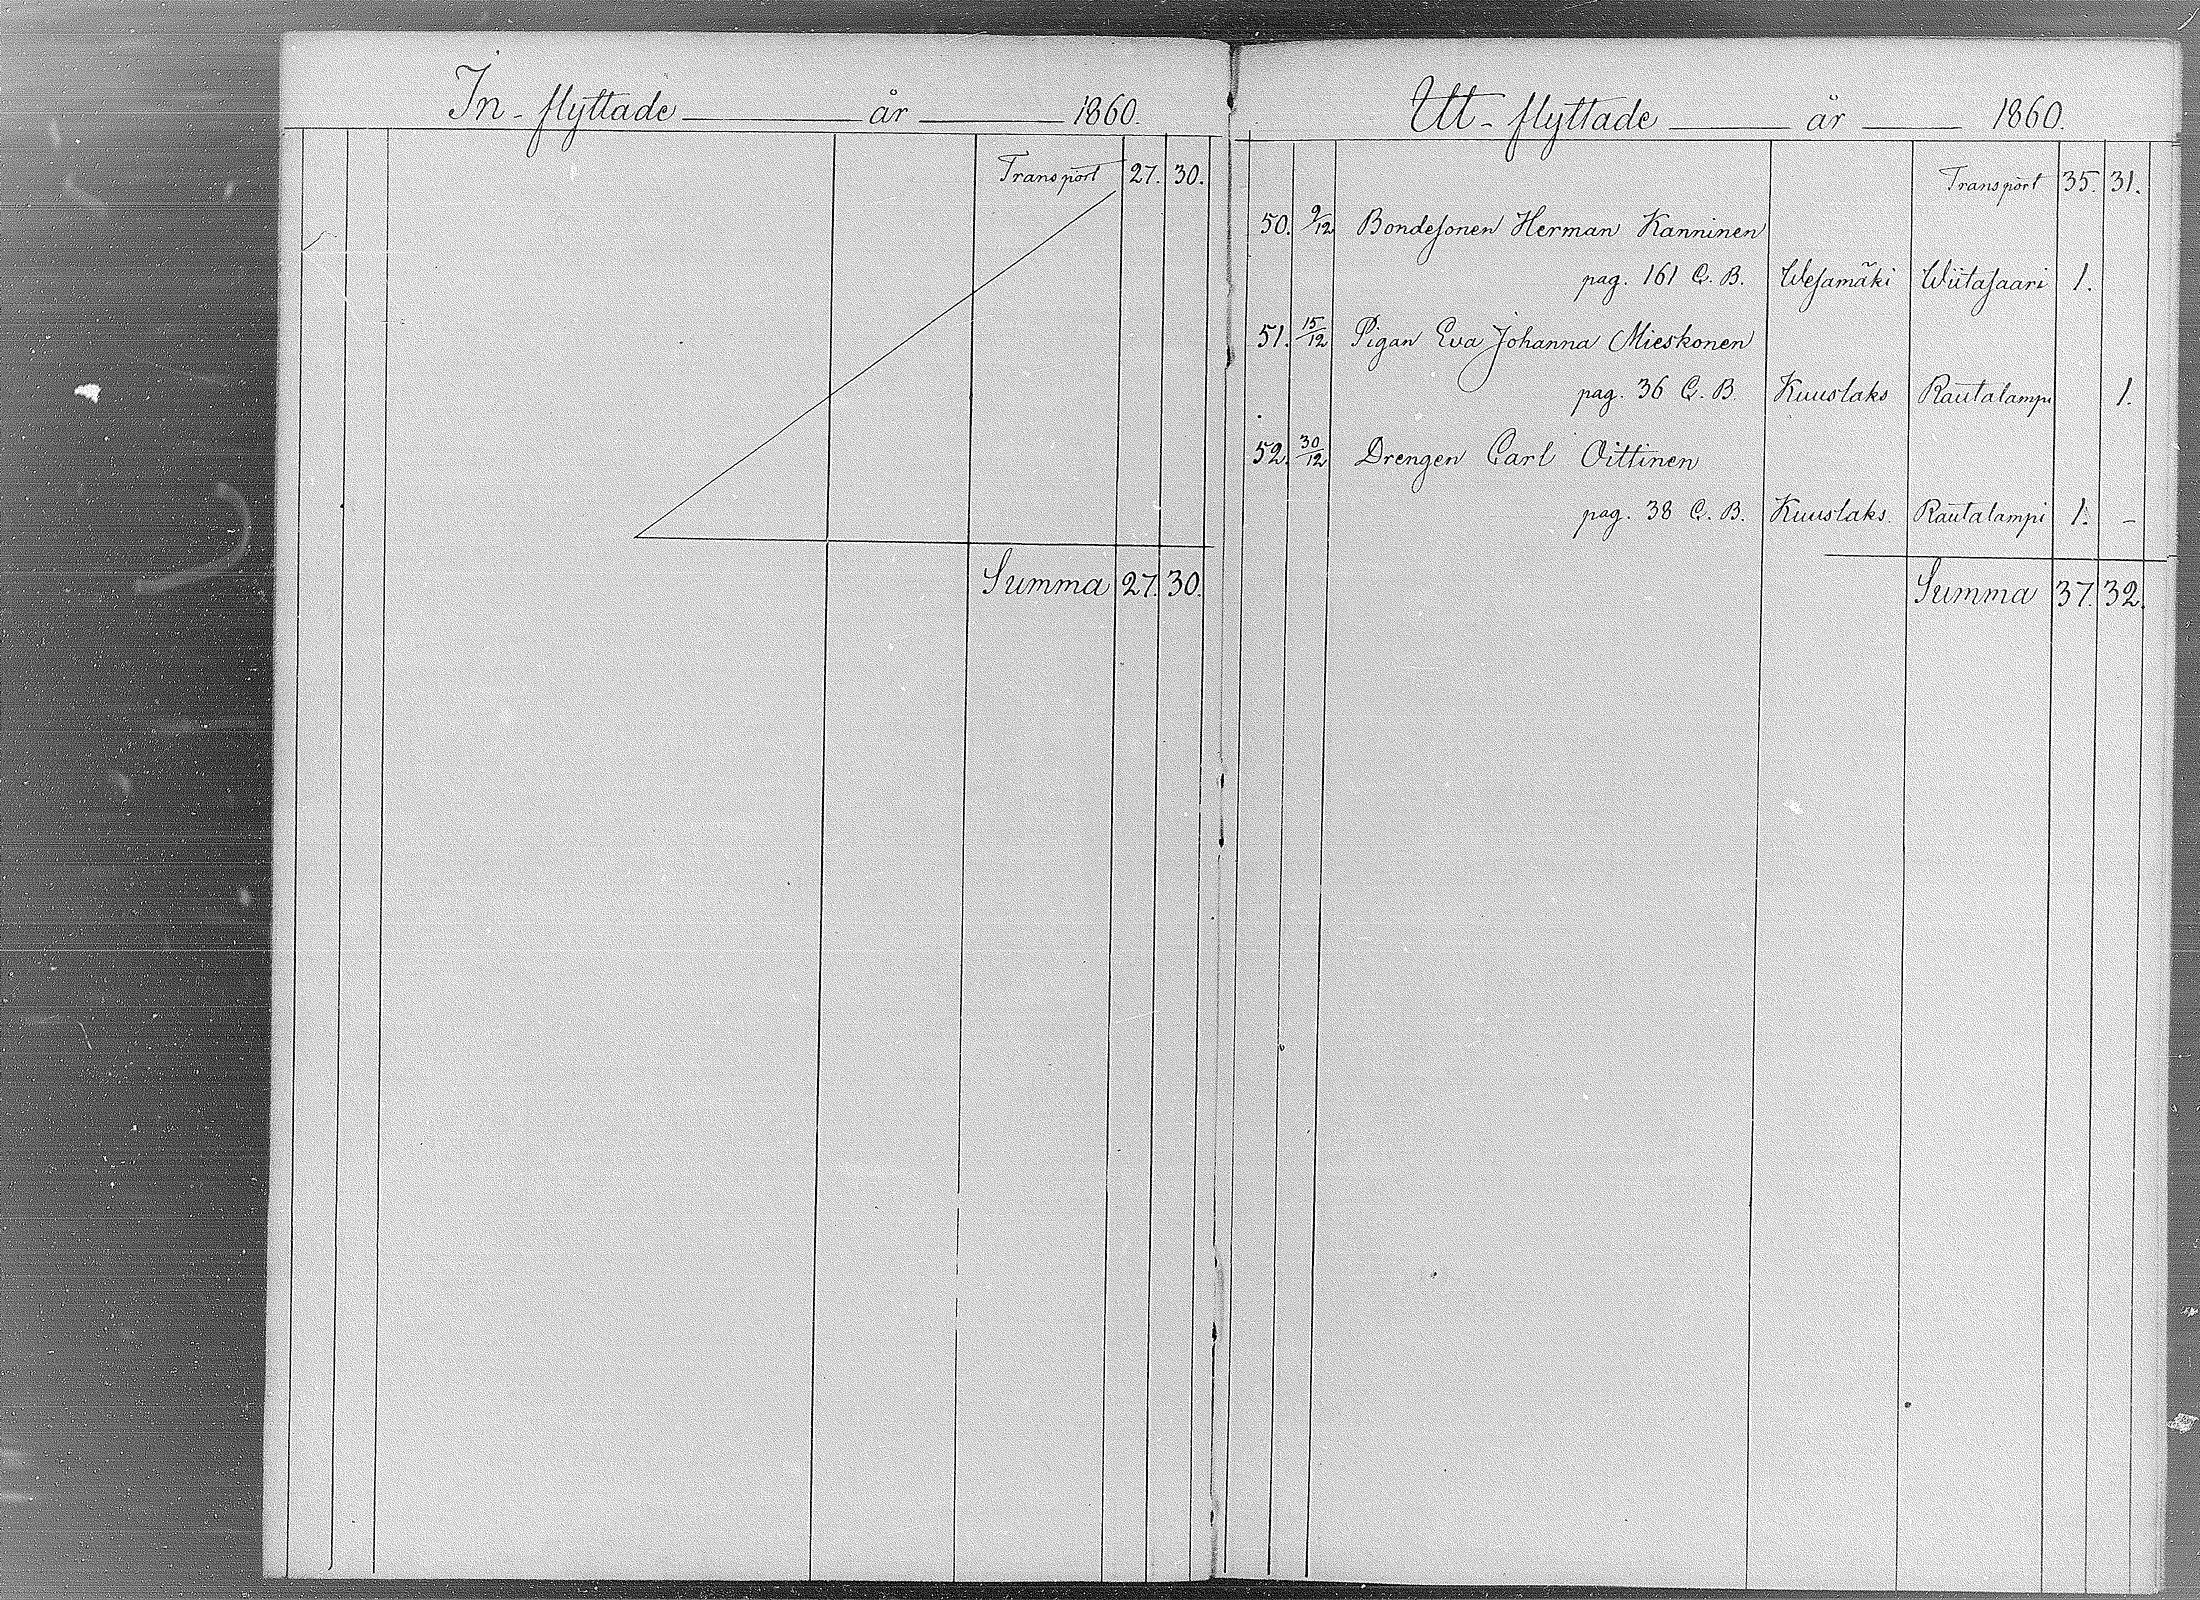 In-flyttade år 1860.
Transport 27. 30.
Summa 27. 30.
Utt-flyttade år 1860.
Transport 35. 31.
50. 9/12 Bondesonen Herman Kanninen
pag. 161 C. B. Wesamäki Wiitasaari 1.
51. 15/12 Pigan Eva Johanna Mieskonen
pag. 36 C. B. Kuuslaks Rautalampi 1.
52. 30/12 Drengen Carl Oittinen
pag. 38 C. B. Kuuslaks. Rautalampi 1. –
Summa 37. 32.